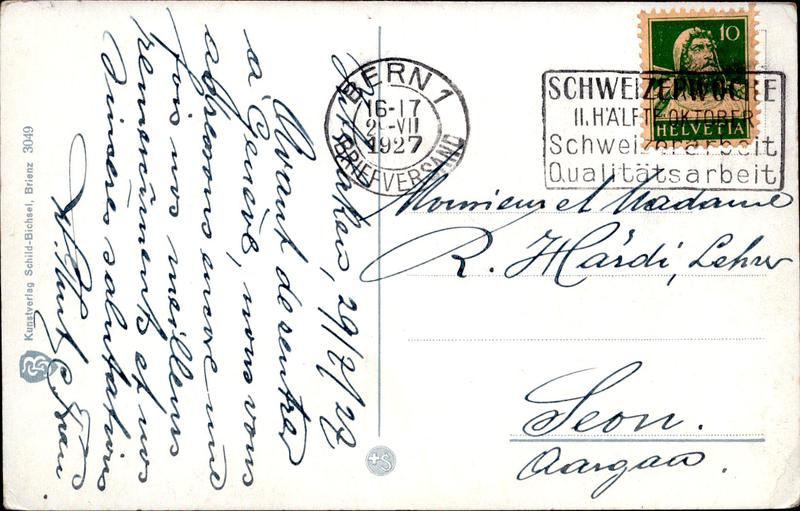 Interlaken, 29/7/27
Avant de rentrer
à Genève, nous vous
adressons encore une
fois nos meilleurs
remerciments et nos
sincères salutations
Kunstverlag Schild-Bichsel, Brienz 3049
BERN 1
16-17
VII
1927
BRIEFVERSAND
SCHWEIZERWOCHE
II. HÄLFTE OKTOBER
Schweizerarbeit
Qualitätsarbeit
10
HELVETIA
Monsieur et Madame
R. Härdi, Lehrer
Seon.
Aargau.
+S